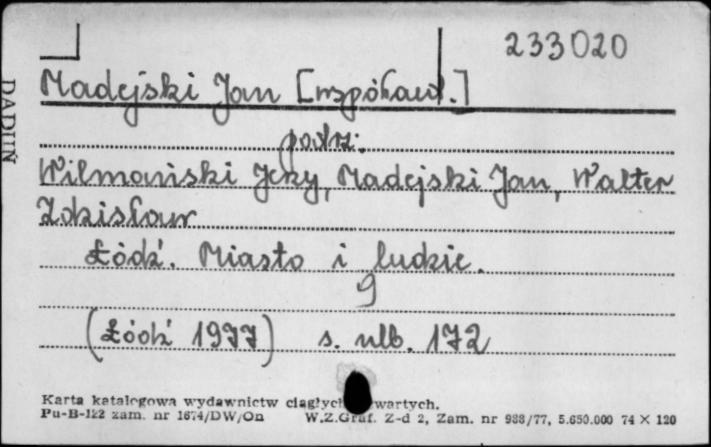 233020
Madejski Jan [współaut.]
podrz:
Wilmański Jerzy, Madejski Jan, Walter
Zdzisław
Łódź. Miasto i ludzie.
9
(Łódź 1977) s. nlb. 172
Karta katalogowa wydawnictw ciągłych wartych.
Pu-B-122 zam. nr 1674/DW/On W.Z.Graf. Z-d 2, Zam. nr 988/77, 5.650.000 74 × 120